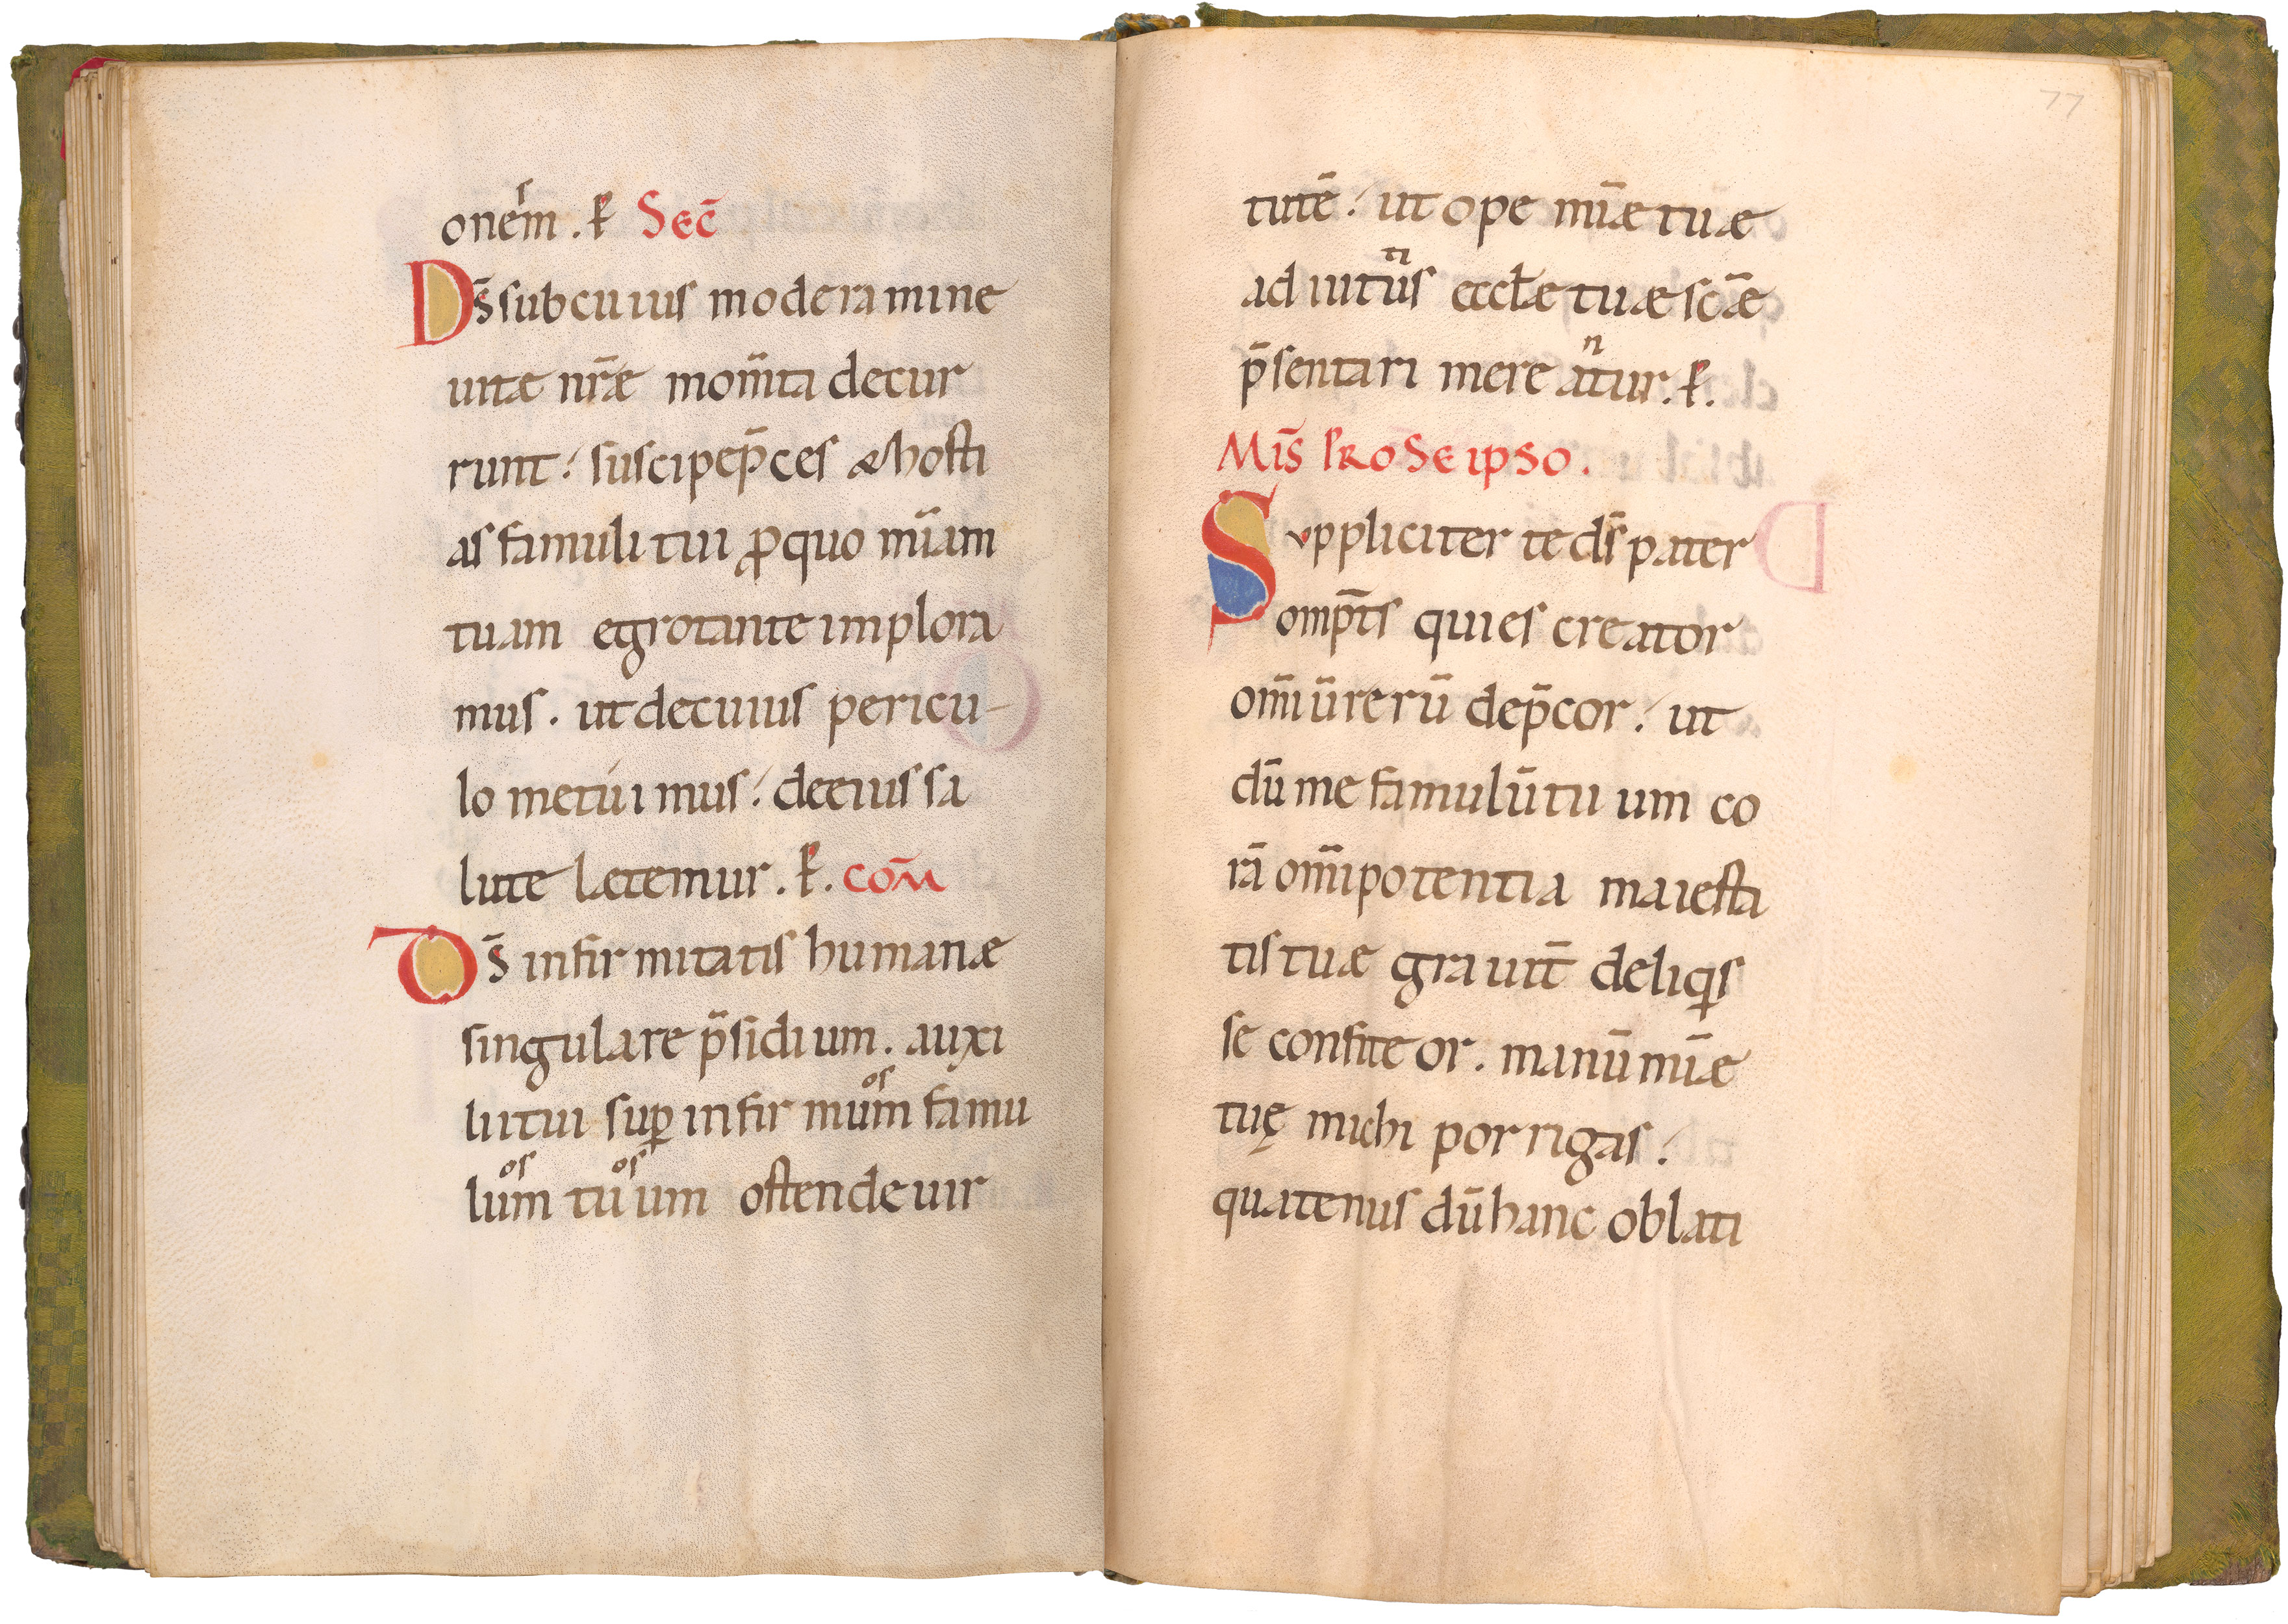 onem̄ . ꝑ Sec̄
Ds̄ sub cuius moderamine
uitæ nr̄æ mom̄ta decur
runt : suscipe p̄ces & hosti
as famuli tui ꝓ quo mīam
tuam egrotante implora
mus . ut de cuius pericu-
lo metúimus : de eius sa
lute lætemur . ꝑ . com̄
Ds̄ infirmitatis humanæ
singulare p̄sidium . auxi
lii tui suꝑ infirmum famu
os
lum tuum ostende uir
os os
77
tutē : ut ope mīæ tuæ
adiutus eccłæ tuæ scǣ
ti
p̄sentari mereatur . ꝑ .
n
Mis̄ PRO Se ipso .
Suppliciter te ds̄ pater
omp̄ts qui es creator
om̄iū rerū dep̄cor : ut
dū me famulū tuum co
rā om̄ipotentia maiesta
tis tuæ grauit̄ deliq̇s
se confiteor . manū mīæ
tuę michi porrigas :
quatenus dū hanc oblati